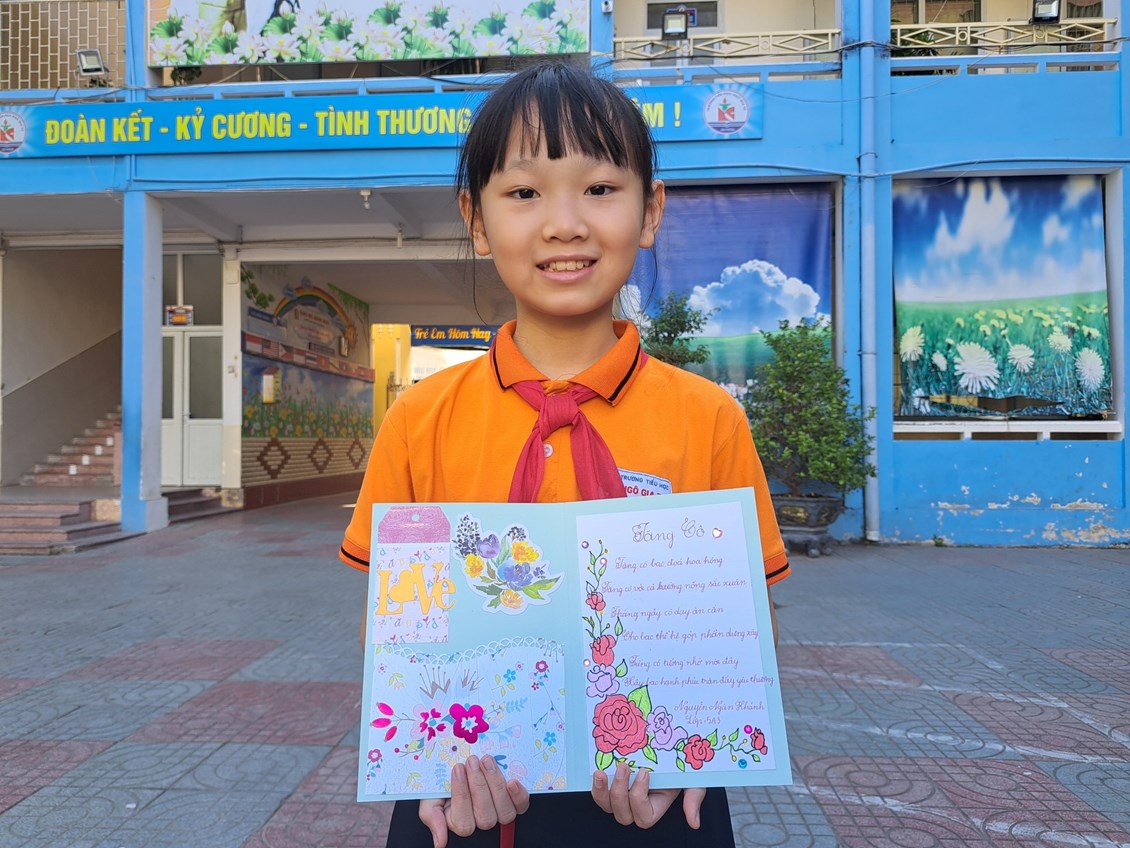 ĐOÀN KẾT - KỶ CƯƠNG - TÌNH THƯƠNG
M !
Trẻ Em Hôm Nay -
TRƯỜNG TIỂU HỌC
NGÔ GIA
Love
Tặng Cô
Tặng cô bao đoá hoa hồng
Tặng cô với cả hương nồng sắc xuân
Tháng ngày cô dạy ân cần
Cho bao thế hệ góp phần dựng xây
Trồng cô tường nhớ mới đây
Hãy bao hạnh phúc tràn đầy yêu thương
Nguyễn Ngân Khánh
Lớp: 5A3